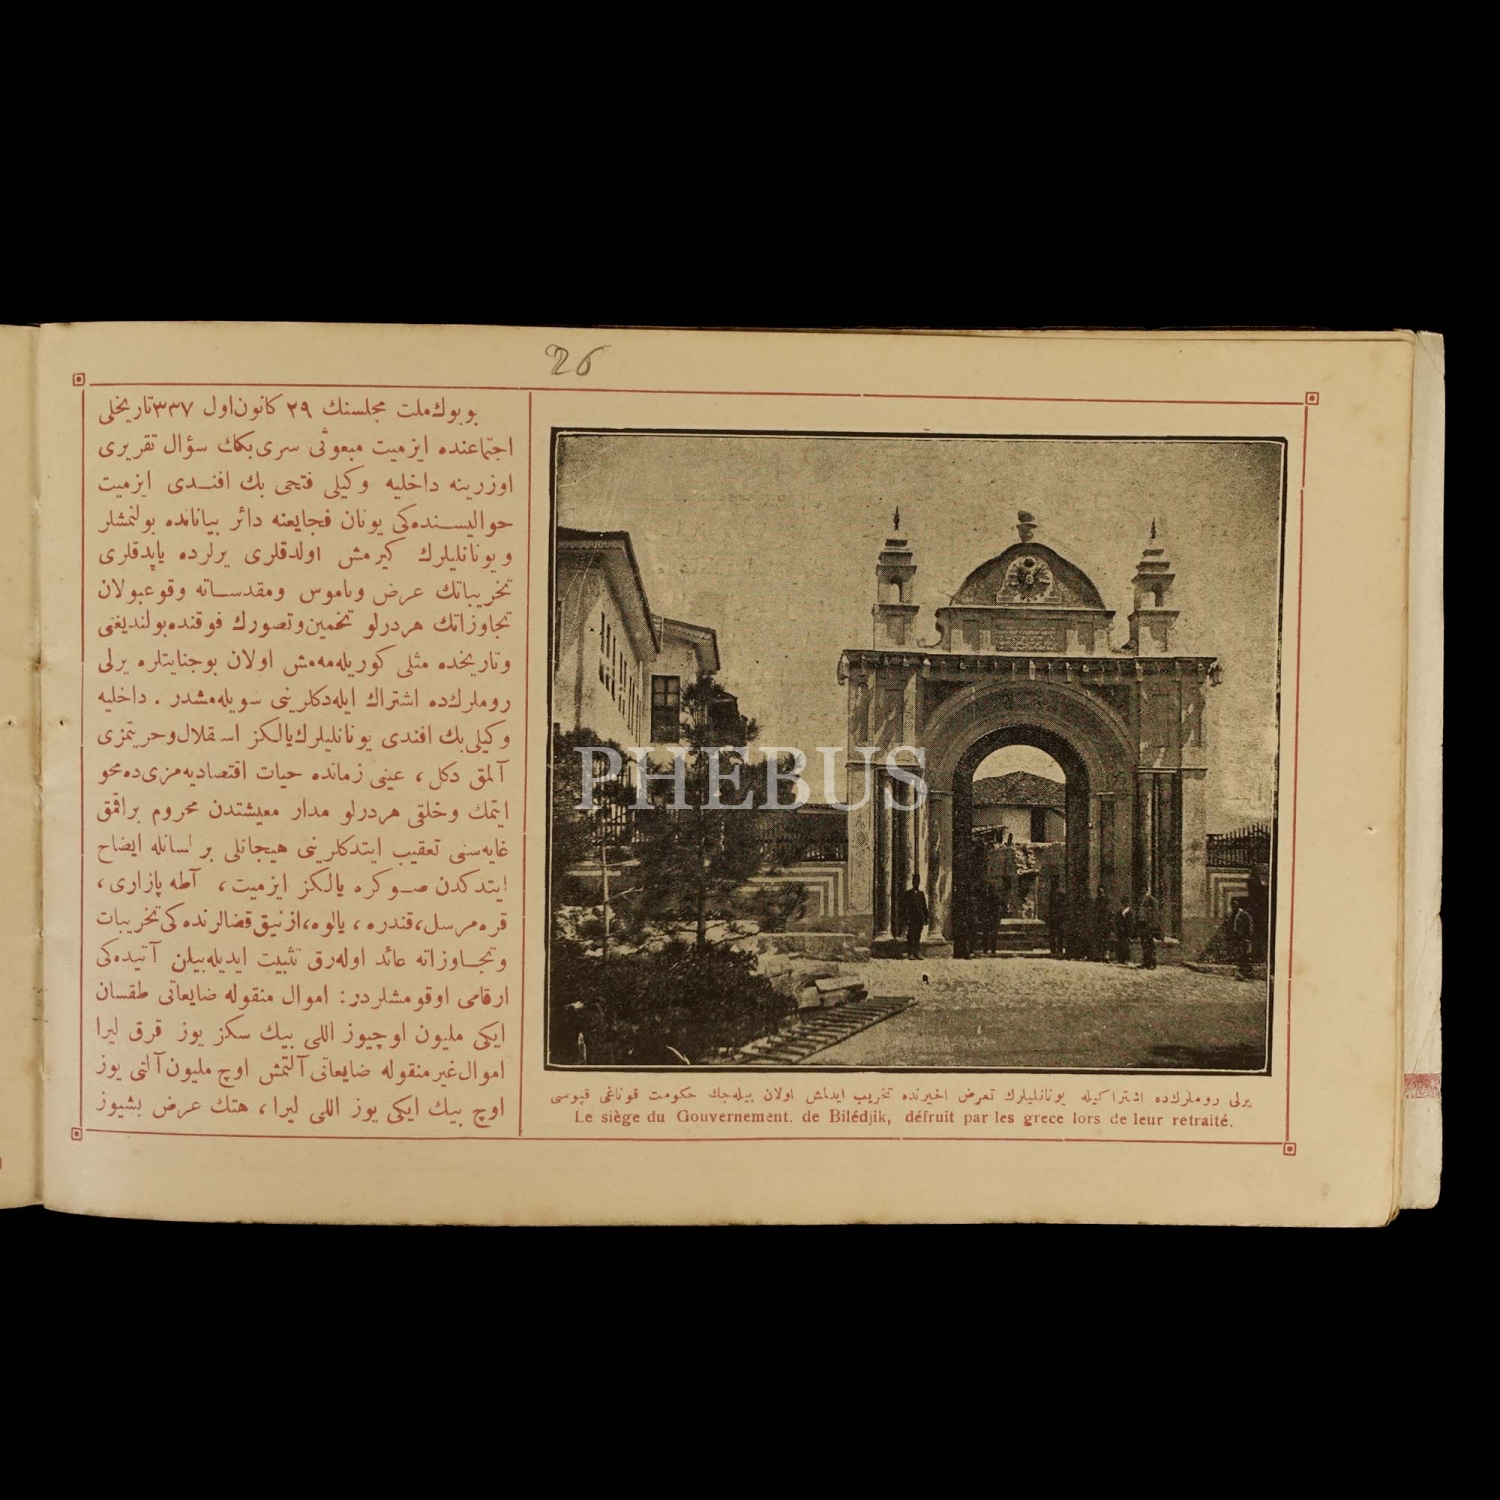 26
بویوك ملت مجلسنك ٢٩ كانون اول ٣٣٧ تاریخلی
اجتماعنده ایزمیت مبعوثی سری بكك سؤال تقریری
اوزرینه داخلیه وكیلی فتحی بك افندی ایزمیت
حوالیسنده‌كی یونان فجایعنه دائر بیاناتده بولنمشلر
و یونانلیلرك كیرمش اولدقلری یرلرده یاپدقلری
تخریباتك عرض وناموس ومقدساته وقوعبولان
تجاوزاتك هردرلو تخمین وتصورك فوقنده بولندیغی
وتاریخده مثلی كوریله‌مه‌مش اولان بوجنایتلره یرلی
روملرك‌ده اشتراك ایله‌دكلرینی سویله‌مشدر . داخلیه
وكیلی بك افندی یونانلیلرك یالكز استقلال وحریتمزی
آلمق دكل ، عینی زمانده حیات اقتصادیه‌مزی‌ده محو
ایتمك وخلقی هردرلو مدار معیشتدن محروم براقمق
غایه‌سنی تعقیب ایتدكلرینی هیجانلی بر لسانله ایضاح
ایتدكدن صوكره یالكز ایزمیت ، آطه پازاری ،
قره‌مرسل ، قندره ، یالوه ، ازنیق قضالرنده‌كی تخریبات
وتجاوزاته عائد اوله‌رق تثبیت ایدیله‌بیلن آتیده‌كی
ارقامی اوقومشلردر : اموال منقوله ضایعاتی طقسان
ایكی ملیون اوچیوز اللی بیك سكز یوز قرق لیرا
اموال غیر منقوله ضایعاتی آلتمش اوچ ملیون آلتی یوز
اوچ بیك ایكی یوز اللی لیرا ، هتك عرض بشیوز
PHEBUS
یرلی روملرك‌ده اشتراكیله یونانلیلرك تعرض اخیرنده تخریب ایدلمش اولان بیله‌جك حكومت قوناغی قپوسی
Le siège du Gouvernement. de Bilédjik, défruit par les grece lors de leur retraité.